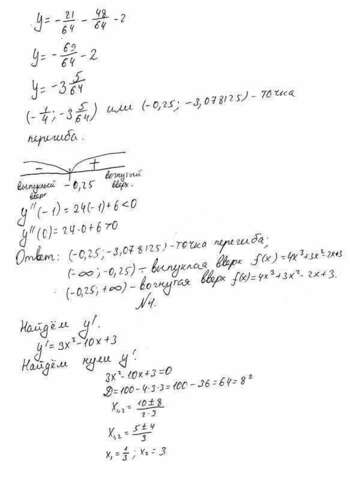 y = -21/64 - 48/64 - 2
y = -69/64 - 2
y = -3 5/64
(-1/4; -3 5/64) или (-0,25; -3,078125) - точка
перегиба.
- +
выпуклый вверх -0,25 вогнутый вверх.
y''(-1) = 24(-1)+6 < 0
y''(0) = 24·0+6 > 0
Ответ: (-0,25; -3,078125) - точка перегиба;
(-∞; -0,25) - выпуклая вверх f(x)=4x³+3x²-2x+3
(-0,25; +∞) - вогнутая вверх f(x)=4x³+3x²-2x+3.
№4.
Найдём y'.
y' = 3x²-10x+3
Найдём нули y'
3x²-10x+3=0
D=100-4·3·3=100-36=64=8²
x₁,₂ = 10±8/2·3
x₁,₂ = 5±4/3
x₁ = 1/3; x₂ = 3